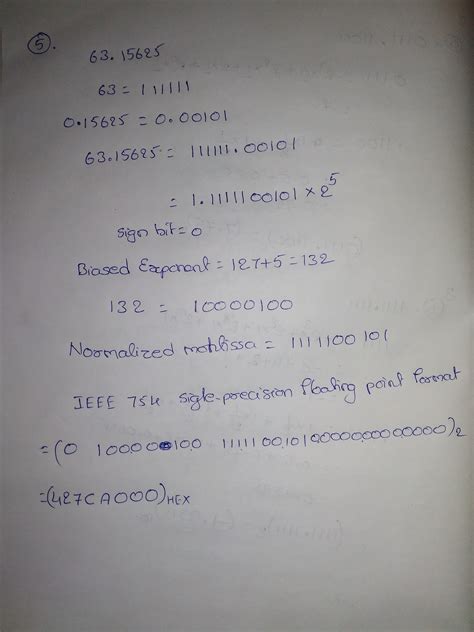 5.
63.15625
63 = 111111
0.15625 = 0.00101
63.15625 = 111111.00101
= 1.1111100101 × 2^5
sign bit = 0
Biased Exponent = 127+5 = 132
132 = 10000100
Normalized mantissa = 1111100101
IEEE 754 sigle-precision floating point format
= (0 10000100 11111001010000000000000)2
= (427CA000)HEX